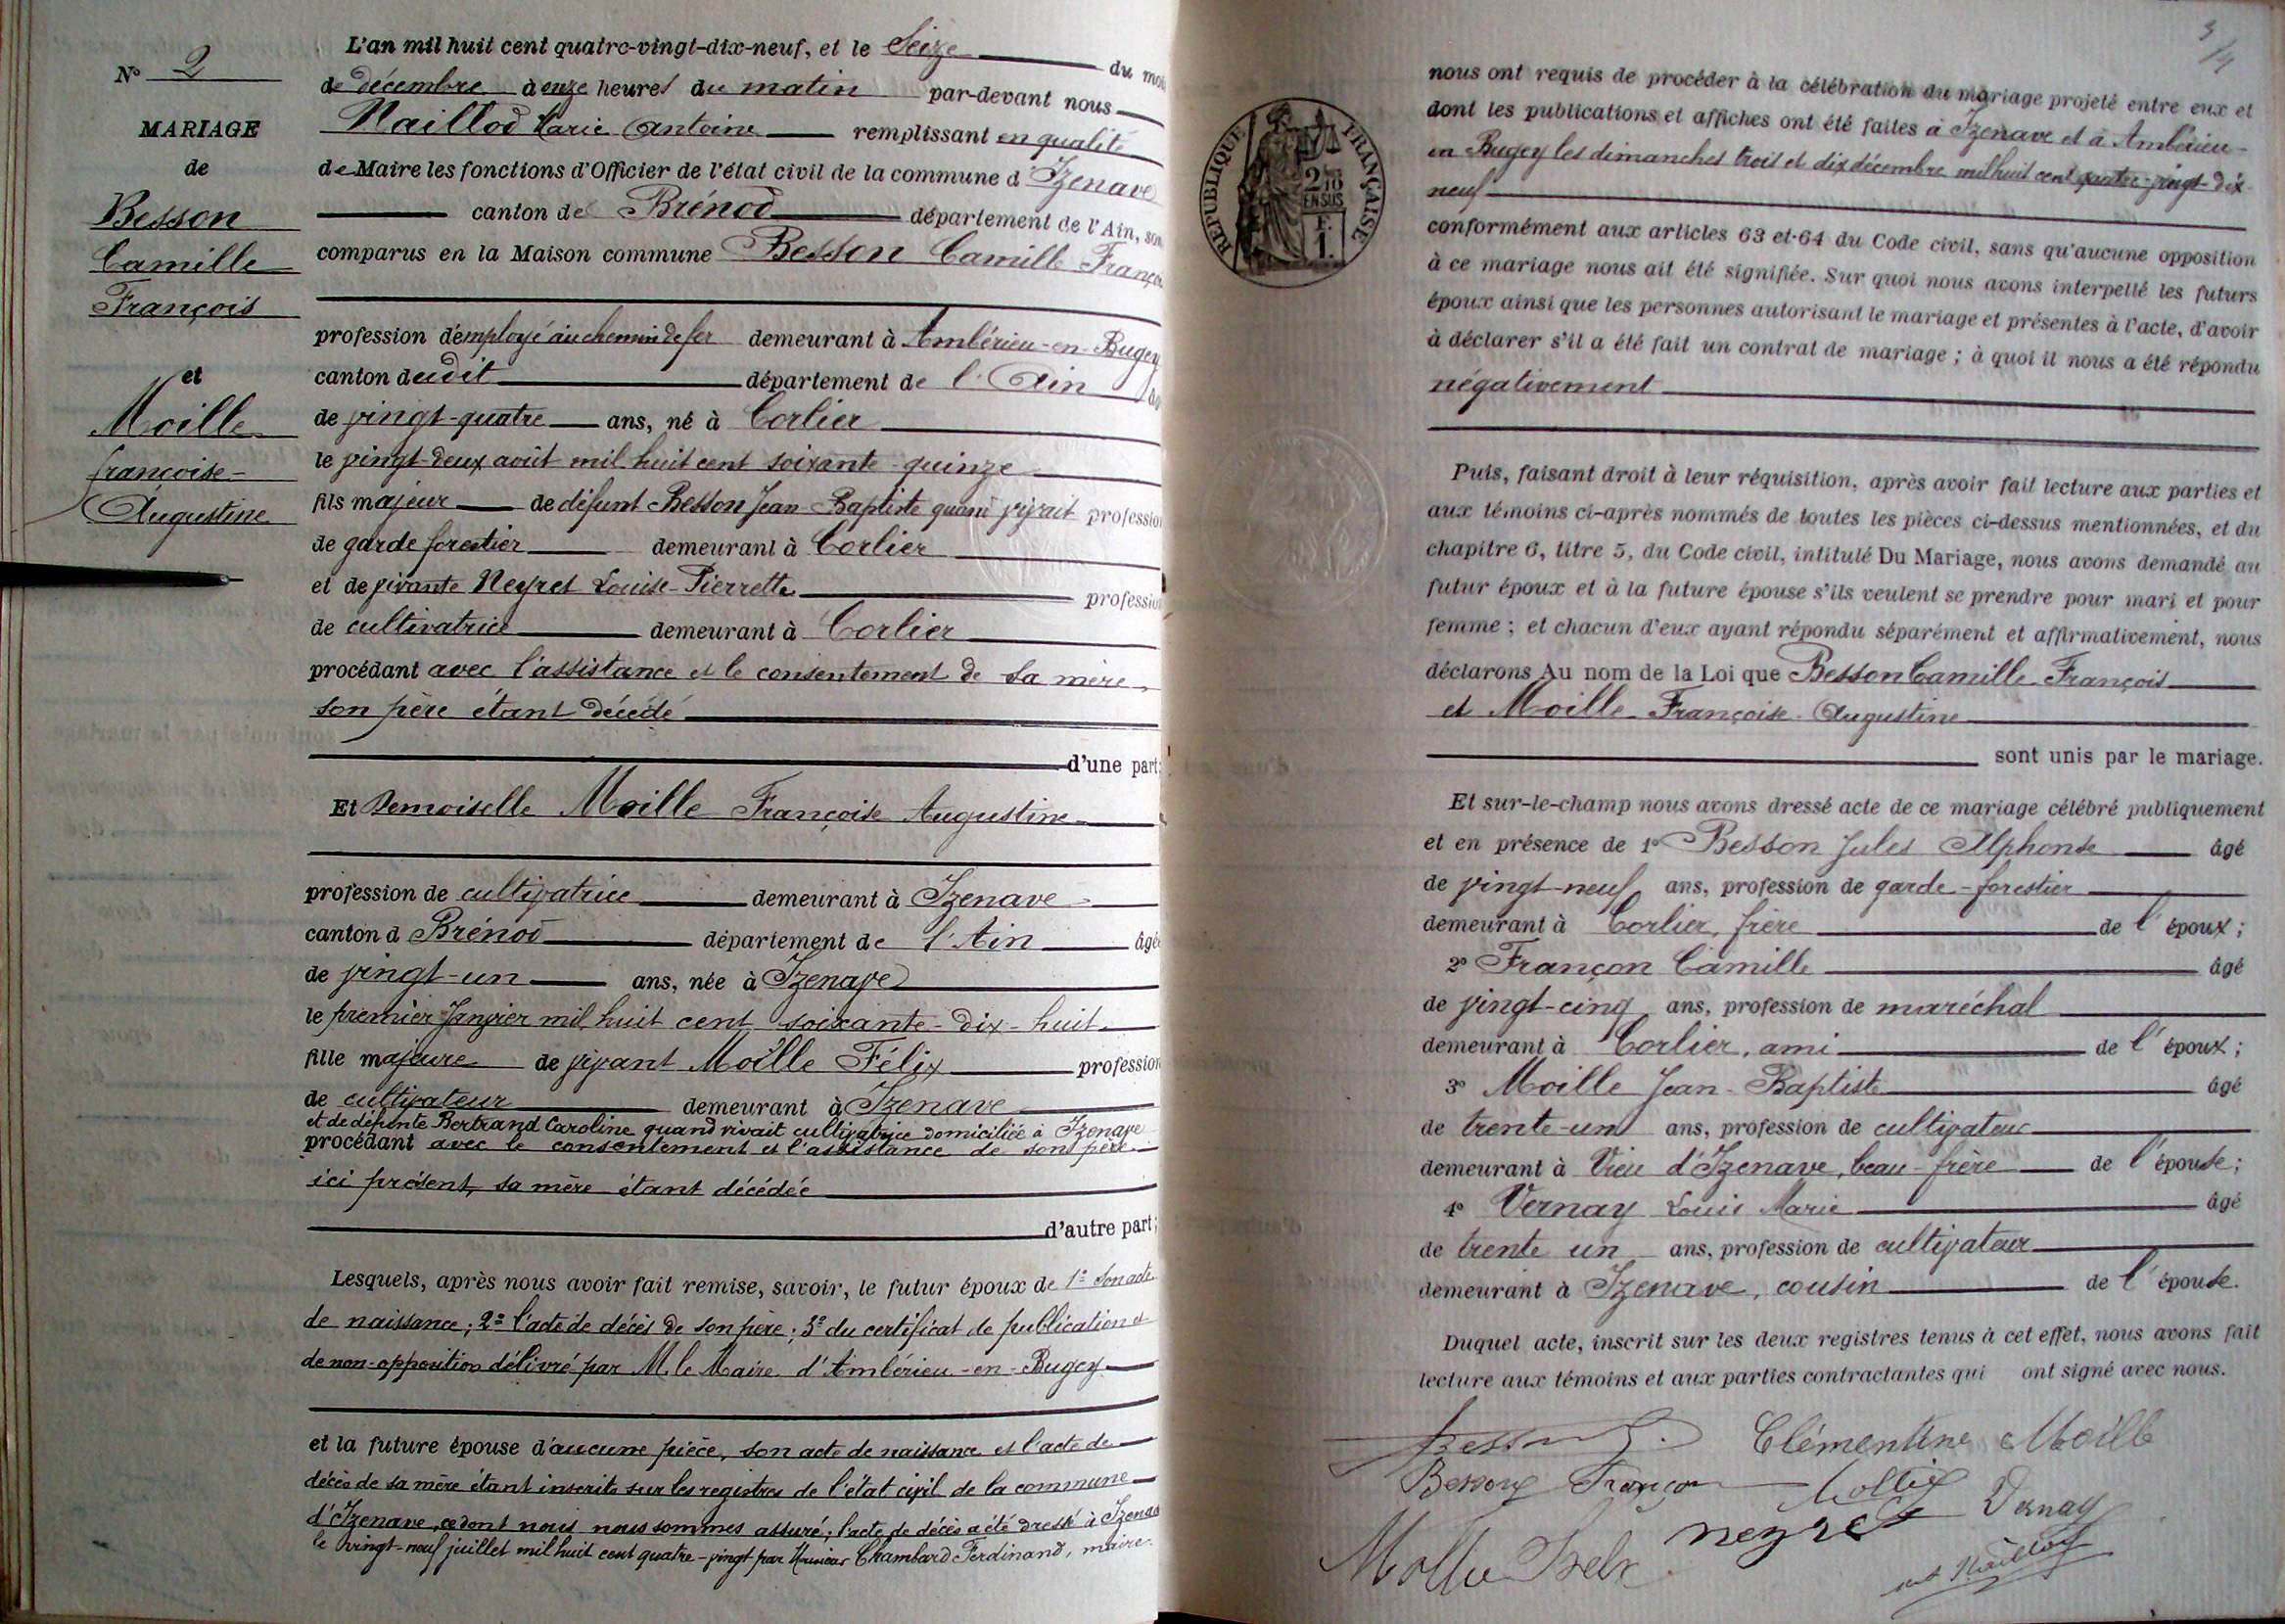 N° 2
MARIAGE
de
Besson
Camille
François
et
Moille
françoise-
Augustine
L'an mil huit cent quatre-vingt-dix-neuf, et le Seize du mois
de décembre à onze heures du matin par-devant nous
Maillod Marie Antoine remplissant en qualité
de Maire les fonctions d'Officier de l'état civil de la commune d'Izenave
canton de Brénod département de l'Ain, sont
comparus en la Maison commune Besson Camille François
profession d'employé au chemin de fer demeurant à Ambérieu-en-Bugey
canton dudit département de l'Ain âgé
de vingt-quatre ans, né à Corlier
le vingt-deux août mil huit cent soixante-quinze
fils majeur de défunt Besson Jean-Baptiste quand vivait profession
de garde forestier demeurant à Corlier
et de vivante Neyret Louise-Pierrette profession
de cultivatrice demeurant à Corlier
procédant avec l'assistance et le consentement de sa mère,
son père étant décédé
d'une part;
Et Demoiselle Moille Françoise Augustine
profession de cultivatrice demeurant à Izenave
canton d Brénod département de l'Ain âgée
de vingt-un ans, née à Izenave
le premier Janvier mil huit cent soixante-dix-huit
fille majeure de vivant Moille Félix profession
de cultivateur demeurant à Izenave
et de défunte Bertrand Caroline quand vivait cultivatrice domiciliée à Izenave
procédant avec le consentement et l'assistance de son père
ici présent, sa mère étant décédée
d'autre part;
Lesquels, après nous avoir fait remise, savoir, le futur époux de 1° son acte
de naissance; 2° l'acte de décès de son père; 3° du certificat de publication et
de non-opposition délivré par M. le Maire d'Ambérieu-en-Bugey
et la future épouse d'aucune pièce, son acte de naissance et l'acte de
décès de sa mère étant inscrits sur les registres de l'état civil de la commune
d'Izenave, ce dont nous nous sommes assuré; l'acte de décès a été dressé à Izenave
le vingt-neuf juillet mil huit cent quatre-vingt par Chambard Ferdinand, maire.
3/4
REPUBLIQUE FRANÇAISE
2/10
EN SUS
F.
1.
nous ont requis de procéder à la célébration du mariage projeté entre eux et
dont les publications et affiches ont été faites à Izenave et à Ambérieu-
en Bugey les dimanches trois et dix décembre mil huit cent quatre-vingt-dix
neuf
conformément aux articles 63 et 64 du Code civil, sans qu'aucune opposition
à ce mariage nous ait été signifiée. Sur quoi nous avons interpellé les futurs
époux ainsi que les personnes autorisant le mariage et présentes à l'acte, d'avoir
à déclarer s'il a été fait un contrat de mariage; à quoi il nous a été répondu
négativement
Puis, faisant droit à leur réquisition, après avoir fait lecture aux parties et
aux témoins ci-après nommés de toutes les pièces ci-dessus mentionnées, et du
chapitre 6, titre 5, du Code civil, intitulé Du Mariage, nous avons demandé au
futur époux et à la future épouse s'ils veulent se prendre pour mari et pour
femme; et chacun d'eux ayant répondu séparément et affirmativement, nous
déclarons Au nom de la Loi que Besson Camille François
et Moille Françoise Augustine
sont unis par le mariage.
Et sur-le-champ nous avons dressé acte de ce mariage célébré publiquement
et en présence de 1° Besson Jules Alphonse âgé
de vingt-neuf ans, profession de garde-forestier
demeurant à Corlier, frère de l'époux;
2° Françon Camille âgé
de vingt-cinq ans, profession de maréchal
demeurant à Corlier, ami de l'époux;
3° Moille Jean-Baptiste âgé
de trente-un ans, profession de cultivateur
demeurant à Vieu d'Izenave, beau-frère de l'épouse;
4° Vernay Louis Marie âgé
de trente un ans, profession de cultivateur
demeurant à Izenave, cousin de l'épouse.
Duquel acte, inscrit sur les deux registres tenus à cet effet, nous avons fait
lecture aux témoins et aux parties contractantes qui ont signé avec nous.
Clémentine Moille
Besson Françon
Vernay
Neyret